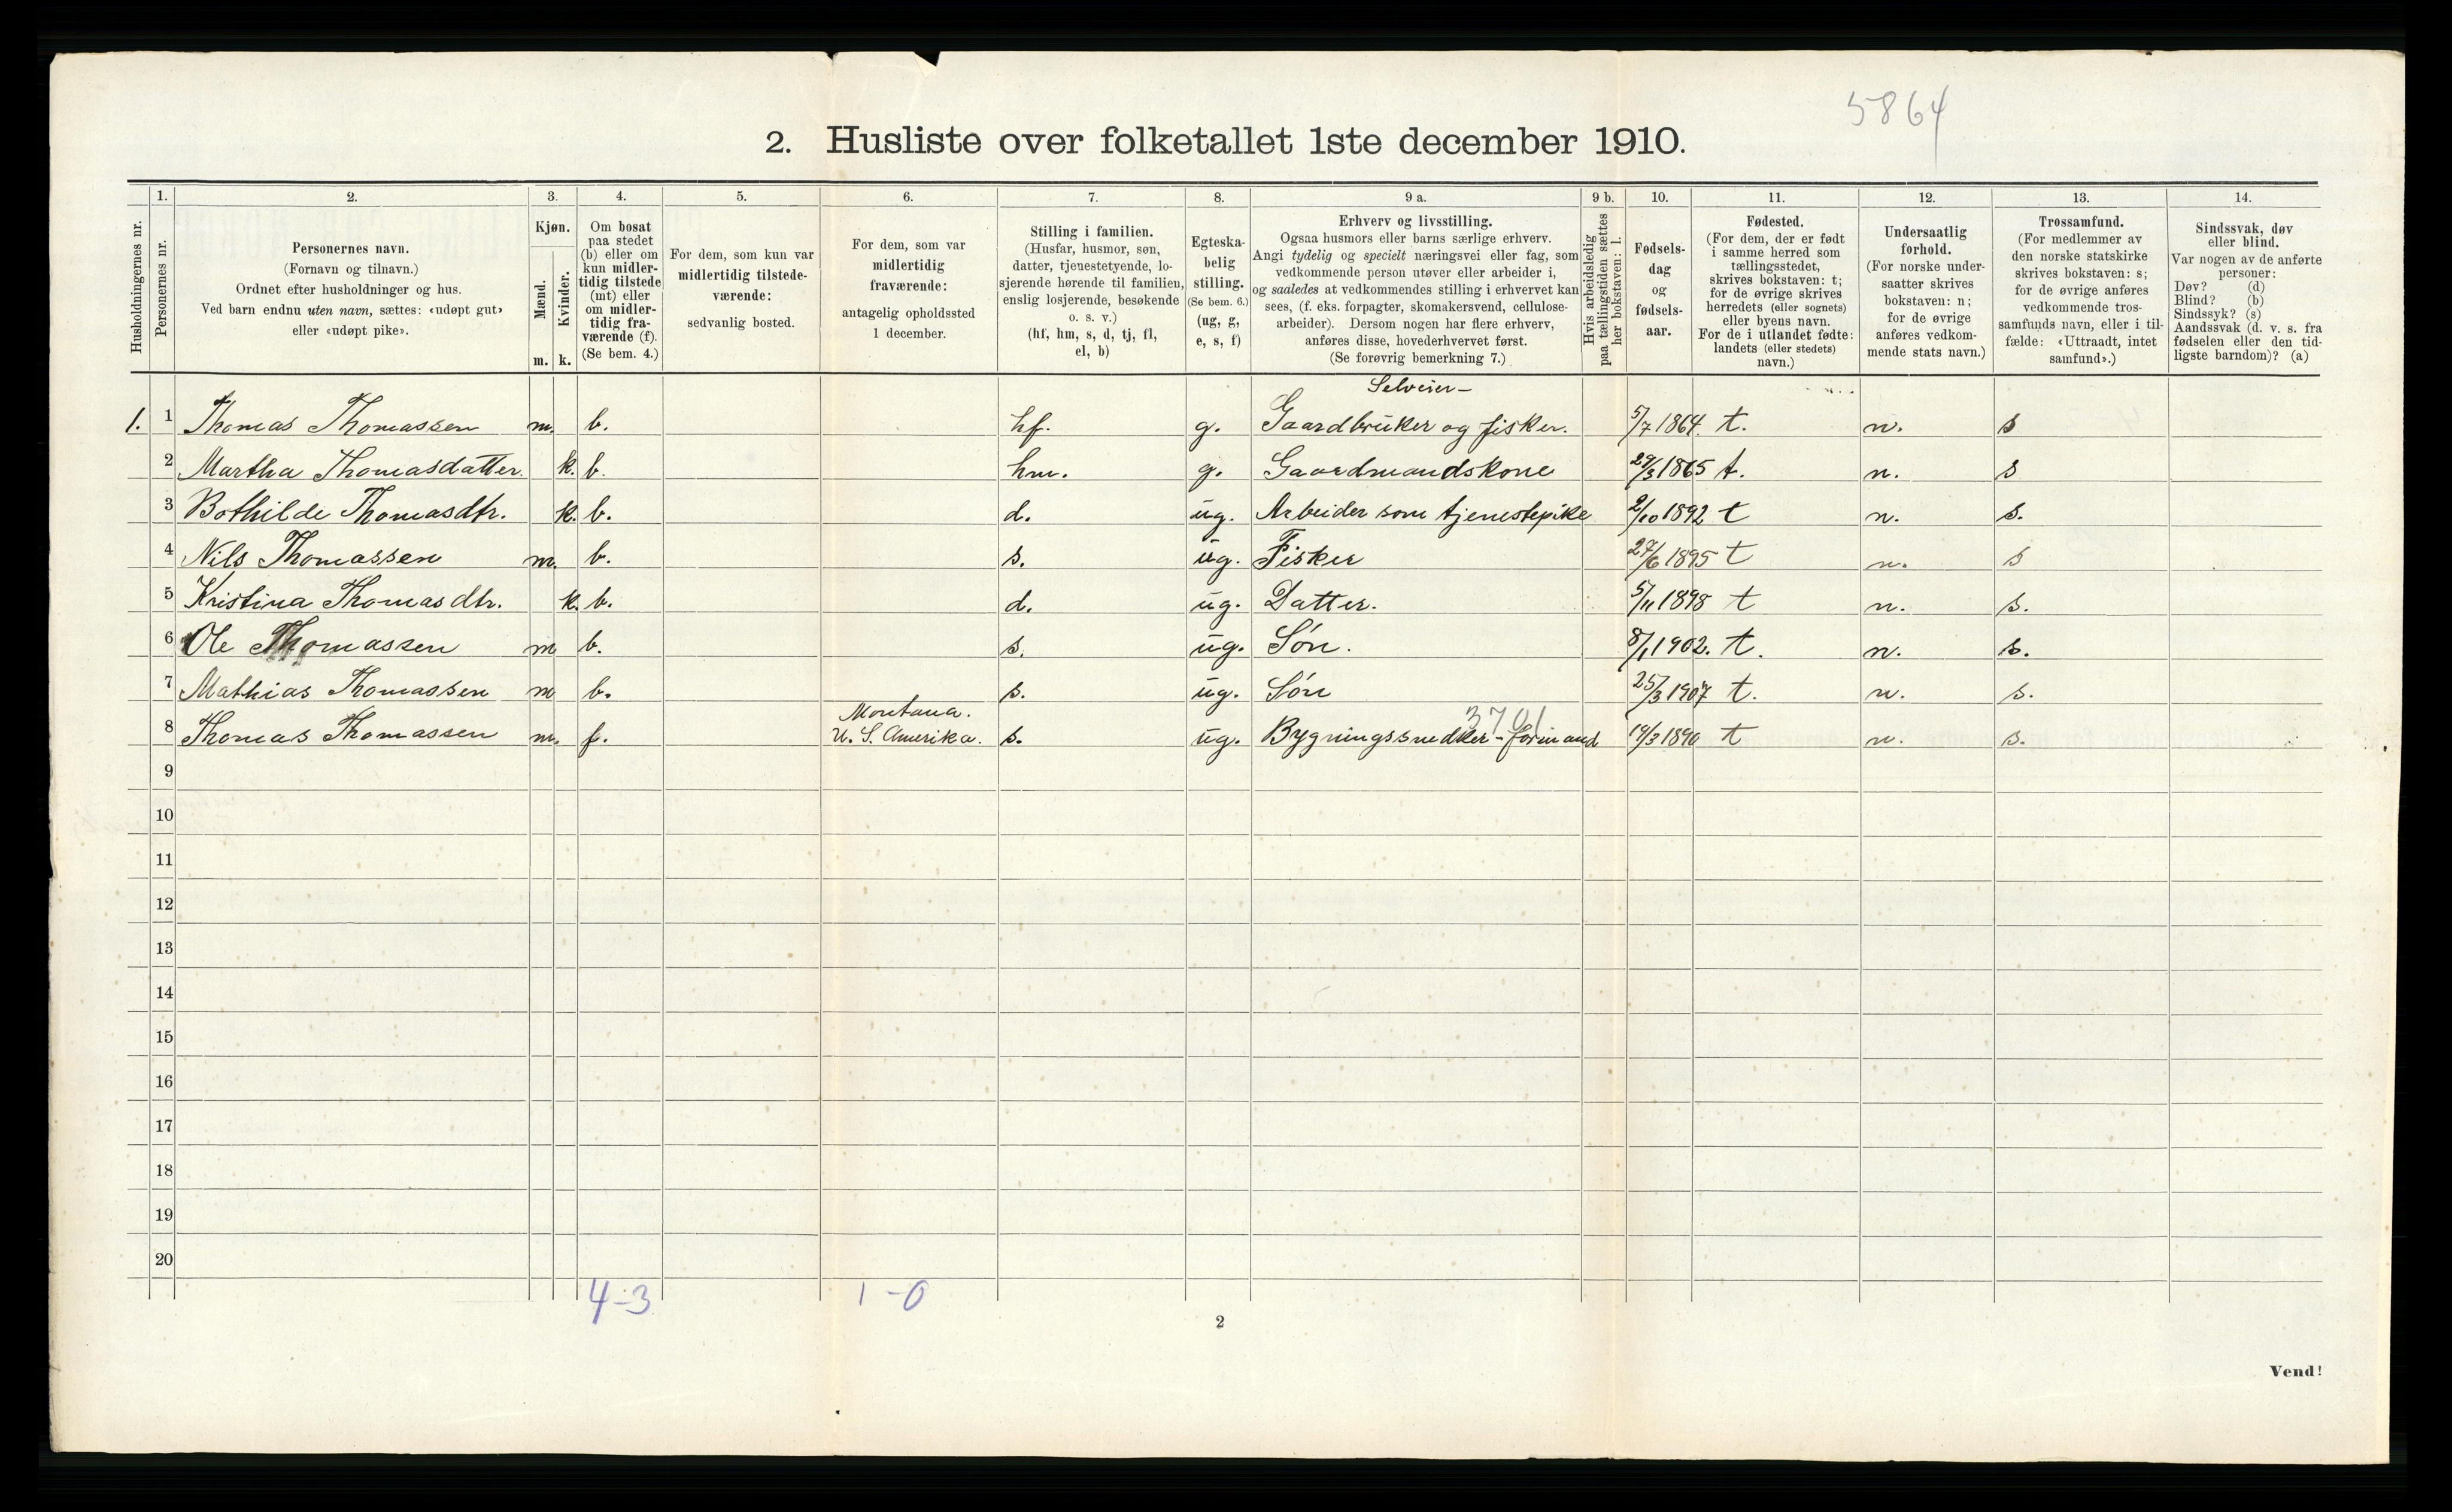 5864
2. Husliste over folketallet 1ste december 1910.
Husholdningernes nr.
1.
Personernes nr.
2.
Personernes navn.
(Fornavn og tilnavn.)
Ordnet efter husholdninger og hus.
Ved barn endnu uten navn, sættes: «udøpt gut»
eller «udøpt pike».
3.
Kjøn.
Mænd.
Kvinder.
m. k.
4.
Om bosat
paa stedet
(b) eller om
kun midler-
tidig tilstede
(mt) eller
om midler-
tidig fra-
værende (f).
(Se bem. 4.)
5.
For dem, som kun var
midlertidig tilstede-
værende:
sedvanlig bosted.
6.
For dem, som var
midlertidig
fraværende:
antagelig opholdssted
1 december.
7.
Stilling i familien.
(Husfar, husmor, søn,
datter, tjenestetyende, lo-
sjerende hørende til familien,
enslig losjerende, besøkende
o. s. v.)
(hf, hm, s, d, tj, fl,
el, b)
8.
Egteska-
belig
stilling.
(Se bem. 6.)
(ug, g,
e, s, f)
9 a.
Erhverv og livsstilling.
Ogsaa husmors eller barns særlige erhverv.
Angi tydelig og specielt næringsvei eller fag, som
vedkommende person utøver eller arbeider i,
og saaledes at vedkommendes stilling i erhvervet kan
sees, (f. eks. forpagter, skomakersvend, cellulose-
arbeider). Dersom nogen har flere erhverv,
anføres disse, hovederhvervet først.
(Se forøvrig bemerkning 7.)
9 b.
Hvis arbeidsledig
paa tællingstiden sættes
her bokstaven: l.
10.
Fødsels-
dag
og
fødsels-
aar.
11.
Fødested.
(For dem, der er født
i samme herred som
tællingsstedet,
skrives bokstaven: t;
for de øvrige skrives
herredets (eller sognets)
eller byens navn.
For de i utlandet fødte:
landets (eller stedets)
navn.)
12.
Undersaatlig
forhold.
(For norske under-
saatter skrives
bokstaven: n;
for de øvrige
anføres vedkom-
mende stats navn.)
13.
Trossamfund.
(For medlemmer av
den norske statskirke
skrives bokstaven: s;
for de øvrige anføres
vedkommende tros-
samfunds navn, eller i til-
fælde: «Uttraadt, intet
samfund».)
14.
Sindssvak, døv
eller blind.
Var nogen av de anførte
personer:
Døv? (d)
Blind? (b)
Sindssyk? (s)
Aandssvak (d. v. s. fra
fødselen eller den tid-
ligste barndom)? (a)
Selveier-
1. 1 Thomas Thomassen m. b. hf. g. Gaardbruker og fisker. 5/7 1864. t. n. s
2 Martha Thomasdatter. k. b. hm. g. Gaardmandskone 29/3 1865 t. n. s
3 Bothilde Thomasdtr. k. b. d. ug. Arbeider som tjenestepike 2/10 1892 t n. s.
4 Nils Thomassen m. b. s. ug. Fisker 27/6 1895 t n. s
5 Kristina Thomasdtr. k. b. d. ug. Datter. 5/11 1898 t n. s.
6 Ole Thomassen m b. s. ug. Søn. 8/1 1902. t. n. s.
7 Mathias Thomassen m b. s. ug. Søn 25/3 1907 t. n. s.
Montana. 3701
8 Thomas Thomassen m. f. U. S. Amerika. s. ug. Bygningssnedker-formand 19/3 1890 t n. s.
9
10
11
12
13
14
15
16
17
18
19
20
4-3 1-0
2
Vend!